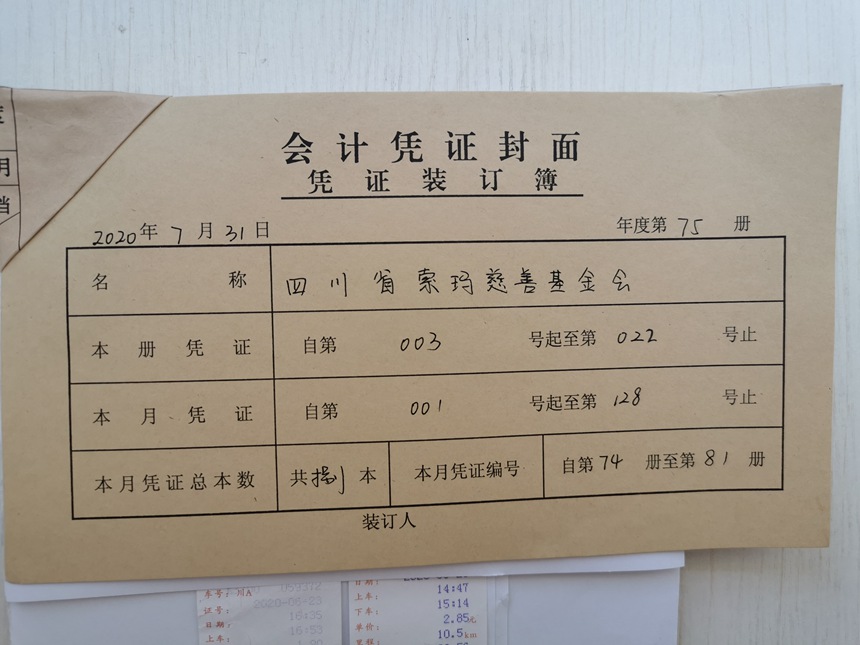 会计凭证封面
凭证装订簿
2020年 7月31日 年度第 75 册
名称 四川省索玛慈善基金会
本册凭证 自第 003 号起至第 022 号止
本月凭证 自第 001 号起至第 128 号止
本月凭证总本数 共捌本 本月凭证编号 自第74 册至第81 册
装订人
月
档
车号: 川A
证号:
2020-06-23
日期:
16:35
上车:
16:53
日期:
上车: 14:47
下车: 15:14
单价: 2.85元
里程: 10.5km